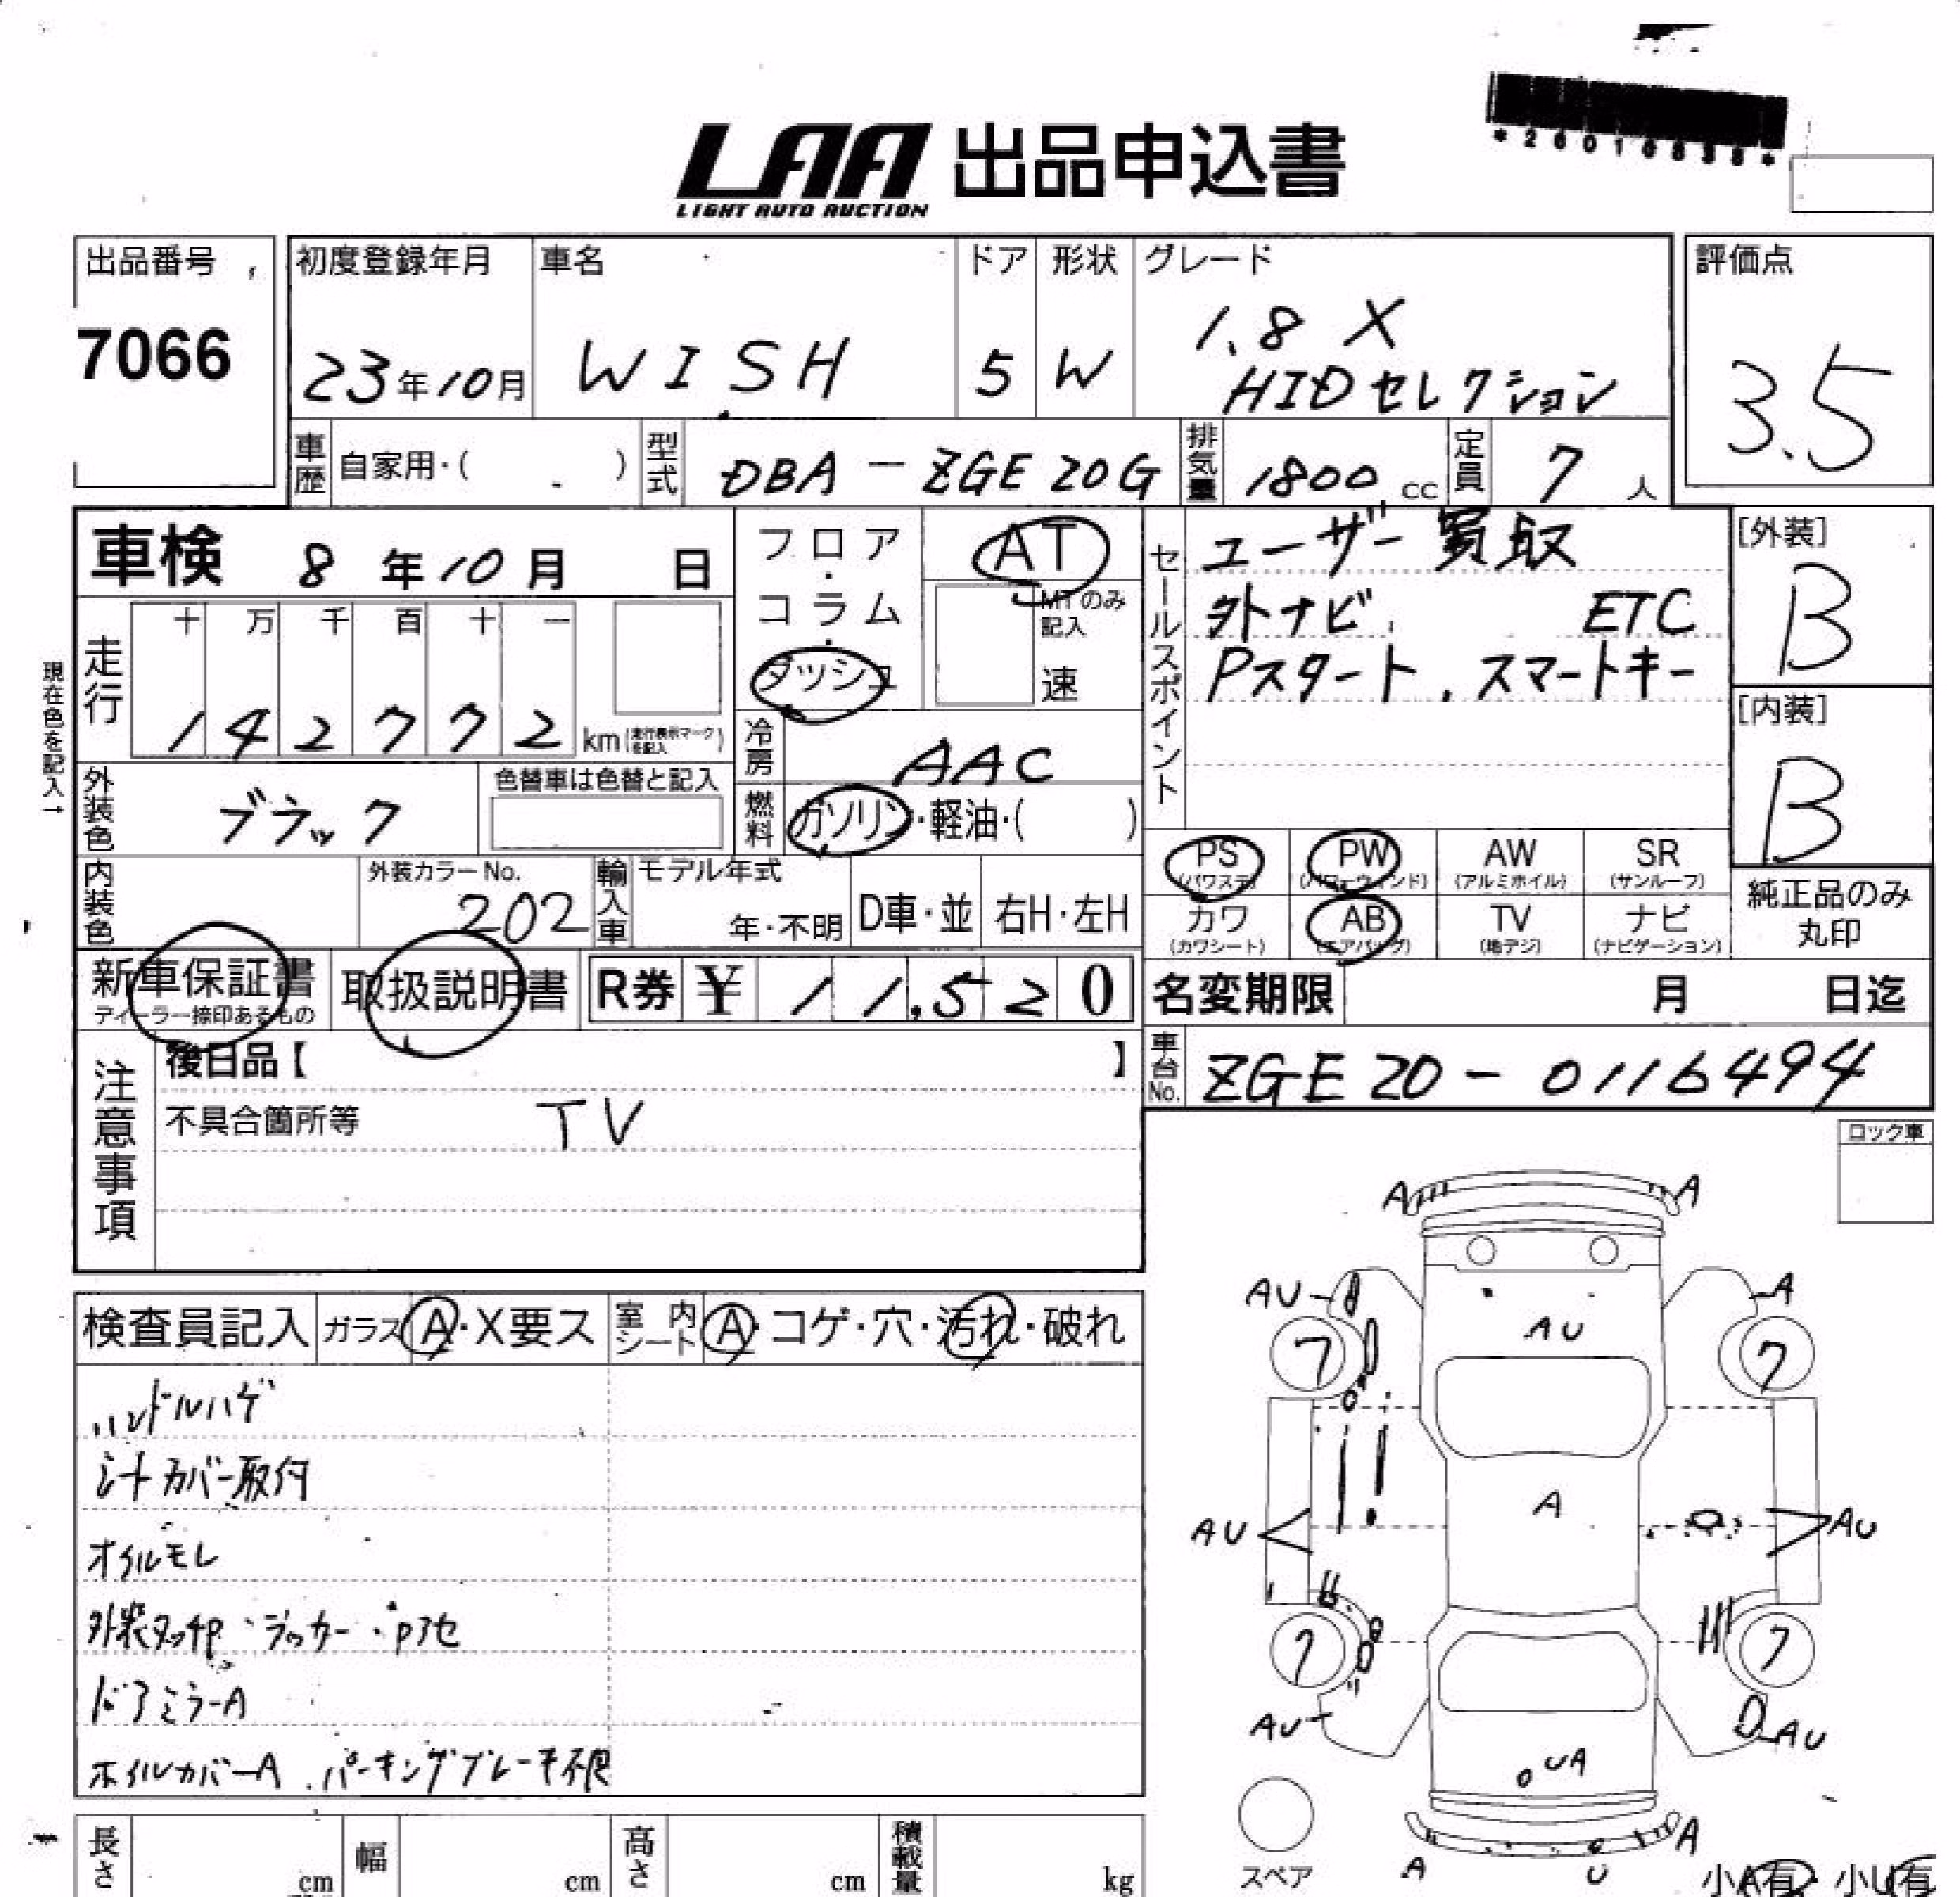 *26018838*
LAA 出品申込書
LIGHT AUTO AUCTION
出品番号
7066
初度登録年月
23年10月
車名
WISH
ドア
5
形状
W
グレード
1.8 X
HIDセレクション
評価点
3.5
車歴 自家用・( )
型式 DBA-ZGE20G
排気量 1800cc
定員 7人
車検 8年10月 日
現在色を記入→
走行
十 万 千 百 十 一
1 4 2 7 7 2 km(走行表示マークを記入)
外装色 ブラック
色替車は色替と記入
内装色
外装カラーNo.
202
フロア・コラム・ダッシュ
AT
MTのみ記入
速
冷房 AAC
燃料 ガソリン・軽油・( )
輸入車
モデル年式
年・不明
D車・並
右H・左H
セールスポイント
ユーザー買取
外ナビ ETC
Pスタート.スマートキー
[外装]
B
[内装]
B
PS(パワステ) PW(パワーウィンド) AW(アルミホイル) SR(サンルーフ)
カワ(カワシート) AB(エアバッグ) TV(地デジ) ナビ(ナビゲーション)
純正品のみ丸印
新車保証書
ディーラー捺印あるもの
取扱説明書
R券 ¥ 11,520
名変期限 月 日迄
車台No. ZGE20-0116494
注意事項
後日品【 】
不具合箇所等 TV
ロック車
検査員記入 ガラス A・X要ス 室内シート A・コゲ・穴・汚れ・破れ
ハンドルハゲ
シートカバー取付
オイルモレ
外装タッチP・ラッカー・Pアセ
ドアミラーA
ホイルカバーA.パーキングブレーキ不良
A A
AU A
AU
7 7
A
AU AU
7 7
AU AU
UA
A
A U
スペア
小A有・小U有
長さ cm
幅 cm
高さ cm
積載量 kg